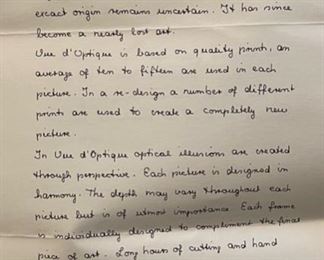 exact origin remains uncertain. It has since
become a nearly lost art.
Vue d'Optique is based on quality prints, an
average of ten to fifteen are used in each
picture. In a re-design a number of different
prints are used to create a completely new
picture.
In Vue d'Optique optical illusions are created
through perspective. Each picture is designed in
harmony. The depth may vary throughout each
picture but is of utmost importance. Each frame
is individually designed to complement the final
piece of art. Long hours of cutting and hand